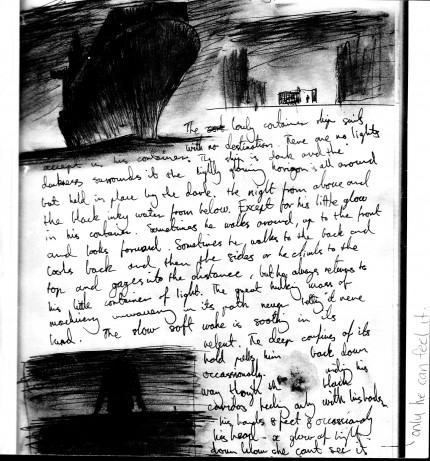 The lonely container ship sails
with no destination. There are no lights
except in his container. The ship is dark and the
darkness surrounds it the lightly glowing horizon is all around
but held in place by the dark. the night from above and
the black inky water from below. Except for his little glow
in his container. Sometimes he walks around, up to the front
and looks forward. Sometimes he walks to the back and
looks back and then the sides or he climbs to the
top and gazes into the distance, but he always returns to
his little container of light. The great hulking mass of
machinery unwavering in its path never
land. The slow soft wake is soothing in its
velvet. The deep confines of its
hold pulls him back down
occassionally. his
way through the black
corridors feeling only with his body,
his hands & feet & occassionally
his head - a glow of light
down below she cant see it
only he can feel it.